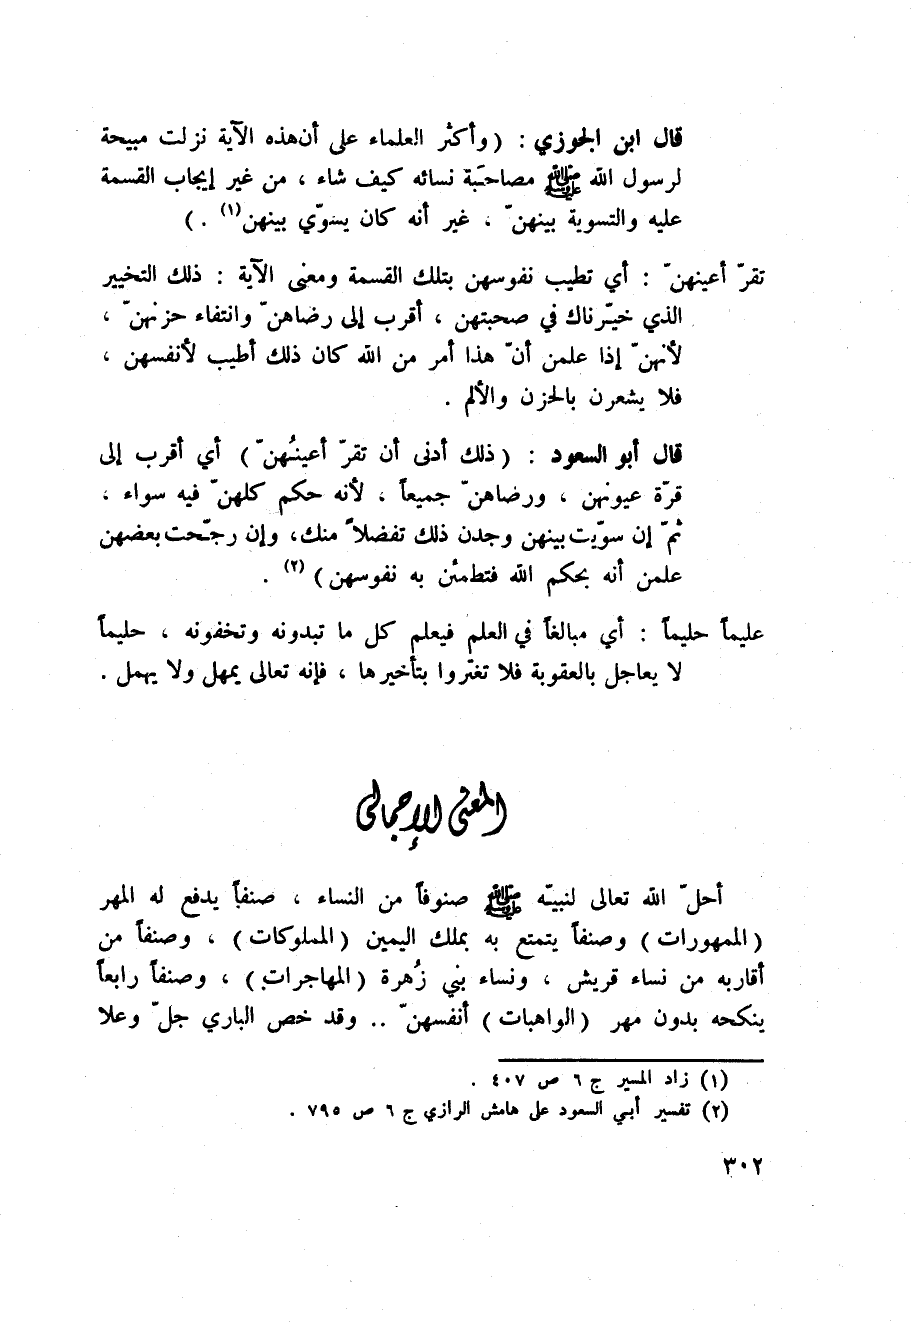 قال ابن الجوزي : ( وأكثر العلماء على أن هذه الآية نزلت مبيحة
لرسول الله ﷺ مصاحبة نسائه كيف شاء ، من غير إيجاب القسمة
عليه والتسوية بينهنّ ، غير أنه كان يسوّي بينهن (١) . )
تقرّ أعينهنّ : أي تطيب نفوسهن بتلك القسمة ومعنى الآية : ذلك التخيير
الذي خيّرناك في صحبتهن ، أقرب إلى رضاهنّ وانتفاء حزنهنّ ،
لأنهنّ إذا علمن أنّ هذا أمر من الله كان ذلك أطيب لأنفسهن ،
فلا يشعرن بالحزن والألم .
قال أبو السعود : ( ذلك أدنى أن تقرّ أعينُهنّ ) أي أقرب إلى
قرّة عيونهن ، ورضاهنّ جميعاً ، لأنه حكم كلهنّ فيه سواء ،
ثمّ إن سوّيت بينهن وجدن ذلك تفضلاً منك، وإن رجّحت بعضهن
علمن أنه بحكم الله فتطمئن به نفوسهن ) (٢) .
عليماً حليماً : أي مبالغاً في العلم فيعلم كل ما تبدونه وتخفونه ، حليماً
لا يعاجل بالعقوبة فلا تغتّروا بتأخيرها ، فإنه تعالى يمهل ولا يهمل .
المعنى الإجمالي
أحلّ الله تعالى لنبيّه ﷺ صنوفاً من النساء ، صنفاً يدفع له المهر
( الممهورات ) وصنفاً يتمتع به بملك اليمين ( المملوكات ) ، وصنفاً من
أقاربه من نساء قريش ، ونساء بني زُهرة ( المهاجرات ) ، وصنفاً رابعاً
ينكحه بدون مهر ( الواهبات ) أنفسهنّ .. وقد خص الباري جلّ وعلا
(١) زاد المسير ج ٦ ص ٤٠٧ .
(٢) تفسير أبي السعود على هامش الرازي ج ٦ ص ٧٩٥ .
٣٠٢